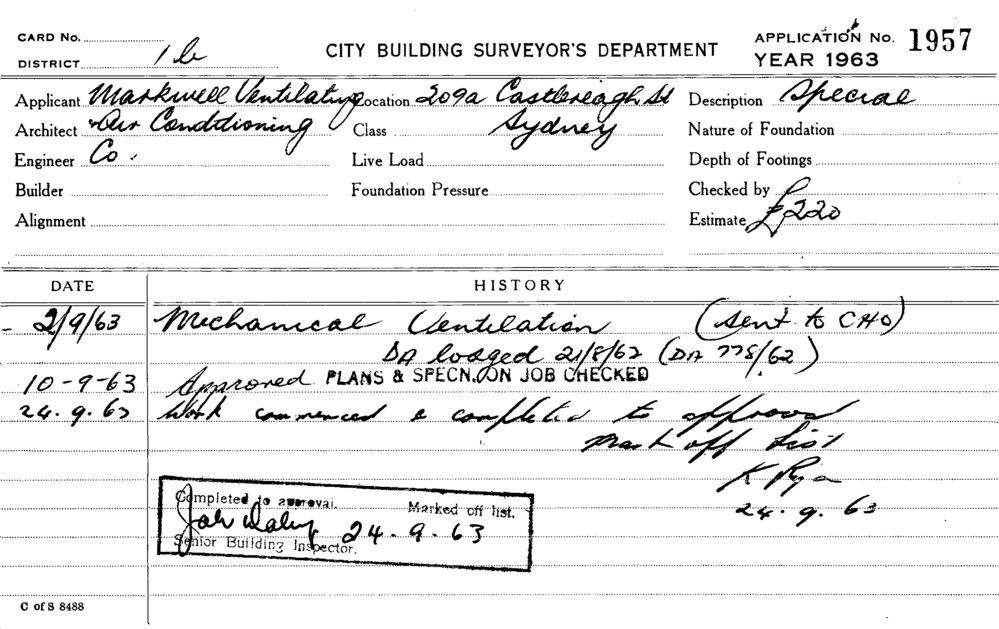 CARD No.
DISTRICT 1b
CITY BUILDING SURVEYOR'S DEPARTMENT
APPLICATION No. 1957
YEAR 1963
Applicant Markwell Ventilating Location 209a Castlereagh St Description Special
Architect & Air Conditioning Class Sydney Nature of Foundation
Engineer Co. Live Load Depth of Footings
Builder Foundation Pressure Checked by
Alignment Estimate £220
DATE HISTORY
2/9/63 Mechanical Ventilation (Sent to CHO)
DA lodged 21/8/62 (DA 778/62)
10-9-63 Approved PLANS & SPECN. ON JOB CHECKED
24.9.63 Work commenced & completed to approval
Mark off list
K Ryan
24.9.63
Completed to approval. Marked off list.
24.9.63
Senior Building Inspector.
C of S 8488